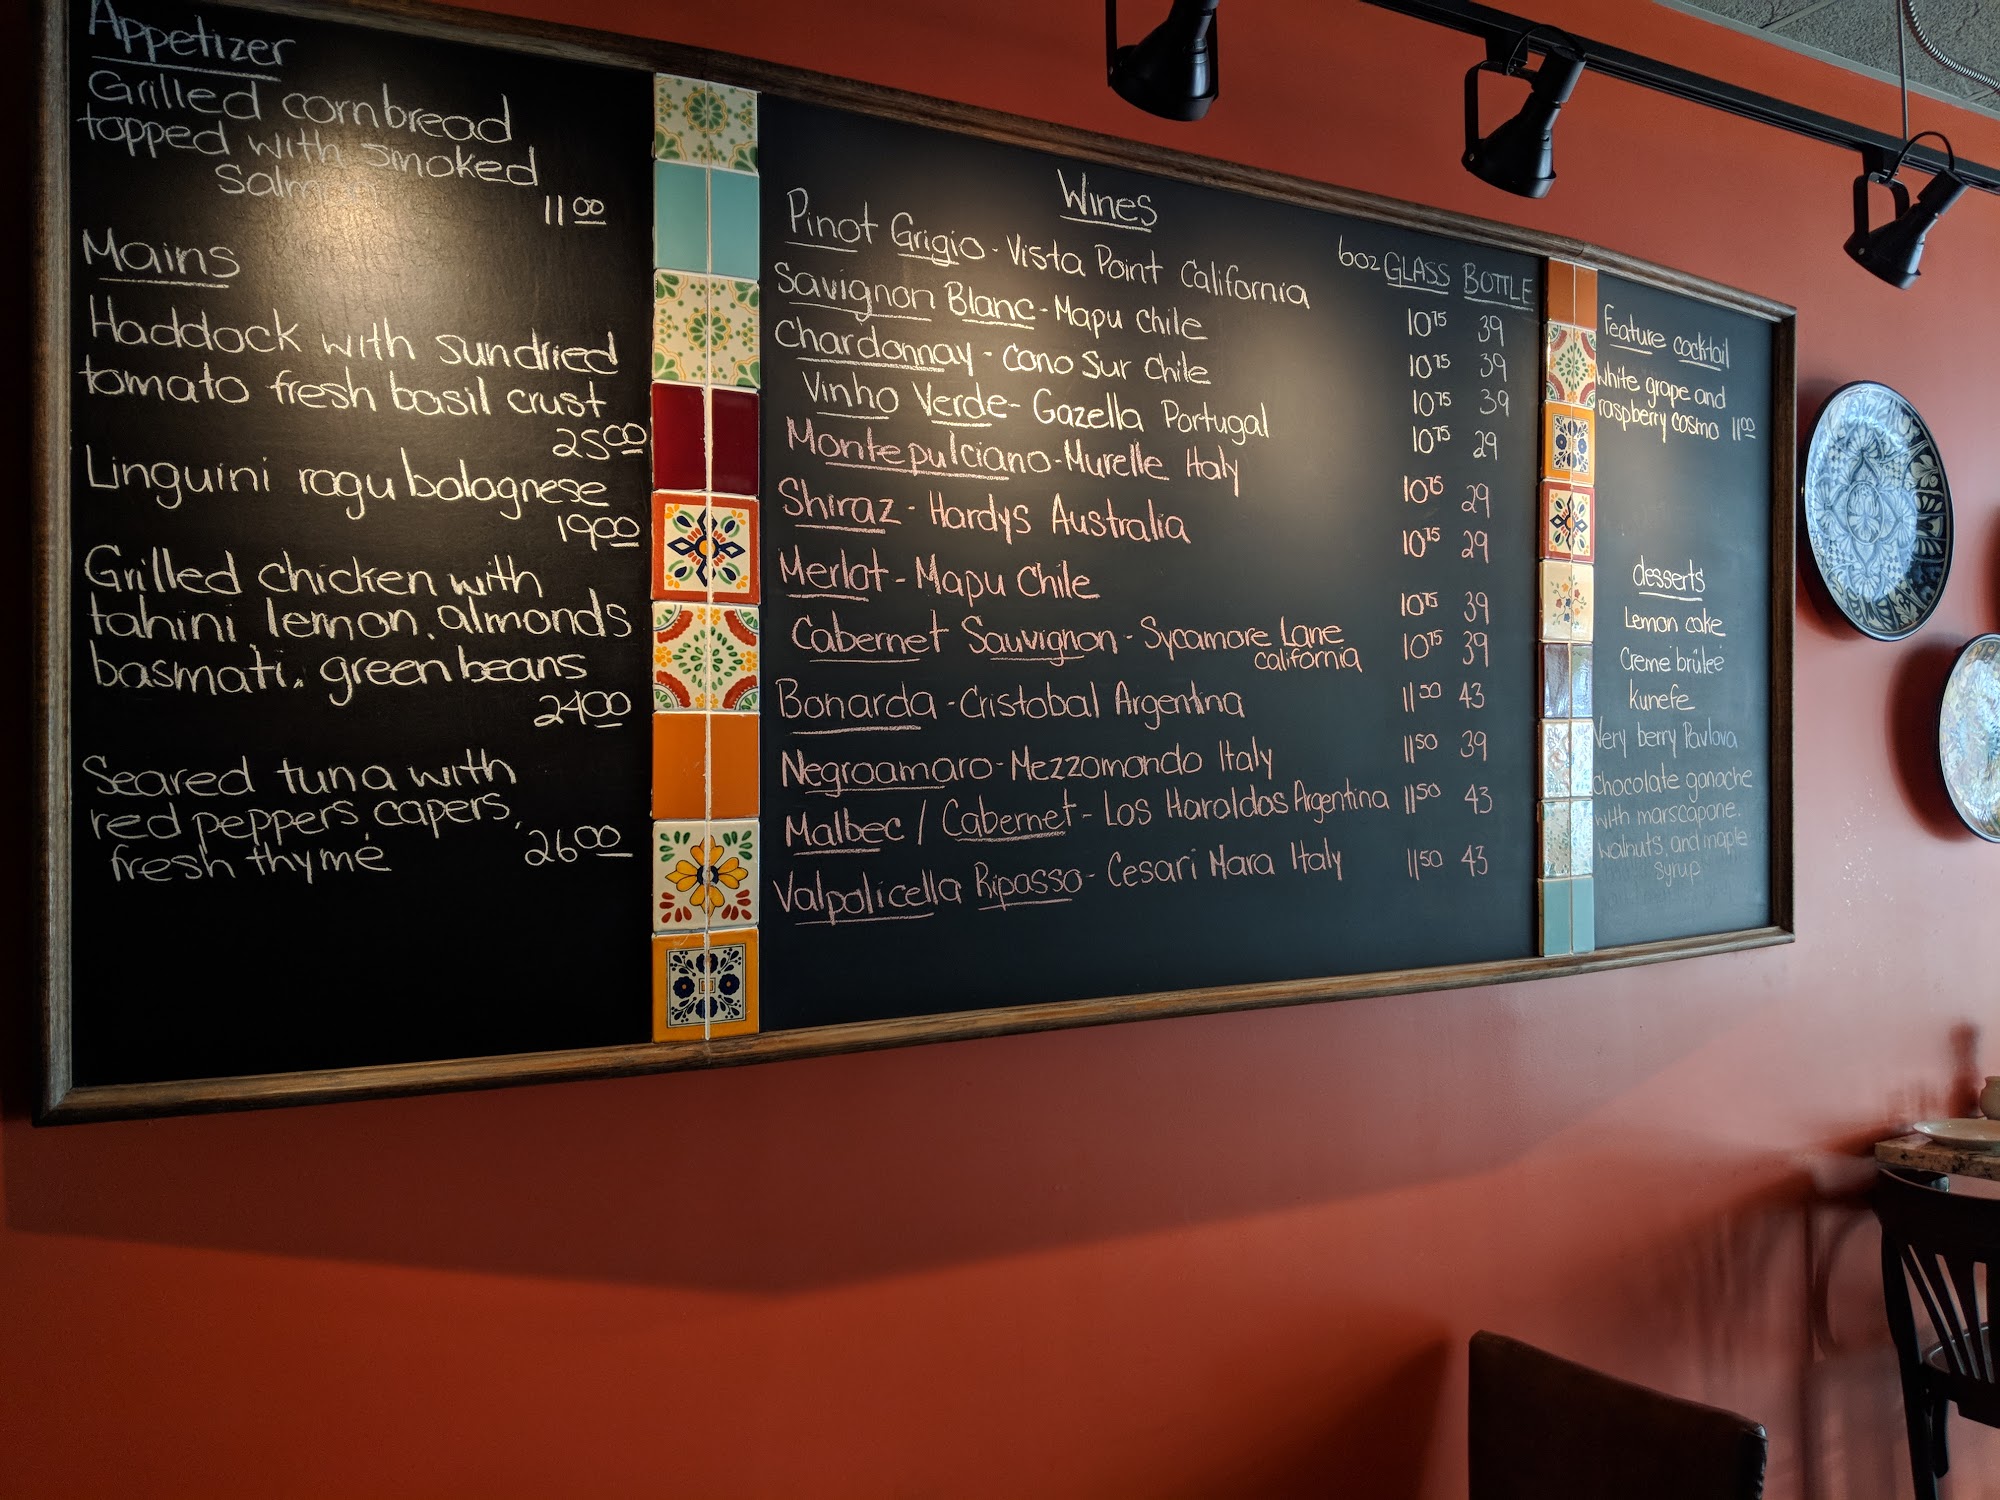 Appetizer
Grilled cornbread
topped with smoked
Salmon
11 00
Mains
Haddock with sundried
tomato fresh basil crust
25 00
Linguini ragu bolognese
19 00
Grilled chicken with
tahini, lemon, almonds
basmati, green beans
24 00
Seared tuna with
red peppers, capers,
fresh thyme 26 00
Wines
6oz GLASS BOTTLE
Pinot Grigio - Vista Point California 10 75 39
Savignon Blanc - Mapu Chile 10 75 39
Chardonnay - Cono Sur Chile 10 75 39
Vinho Verde - Gazella Portugal 10 75 29
Montepulciano - Murelle Italy 10 75 29
Shiraz - Hardys Australia 10 75 29
Merlot - Mapu Chile 10 75 39
Cabernet Sauvignon - Sycamore Lane 10 75 39
California
Bonarda - Cristobal Argentina 11 50 43
Negroamaro - Mezzomondo Italy 11 50 39
Malbec / Cabernet - Los Haroldos Argentina 11 50 43
Valpolicella Ripasso - Cesari Mara Italy 11 50 43
Feature cocktail
white grape and
raspberry cosmo 11 00
desserts
Lemon cake
Creme brûleé
kunefe
Very berry Pavlova
chocolate ganache
with marscapone,
walnuts and maple
syrup